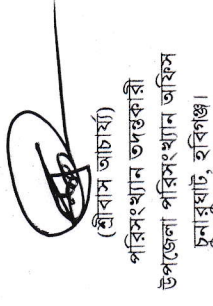 (শ্রীবাস আচার্য্য)
পরিসংখ্যান তদন্তকারী
উপজেলা পরিসংখ্যান অফিস
চুনারুঘাট, হবিগঞ্জ।